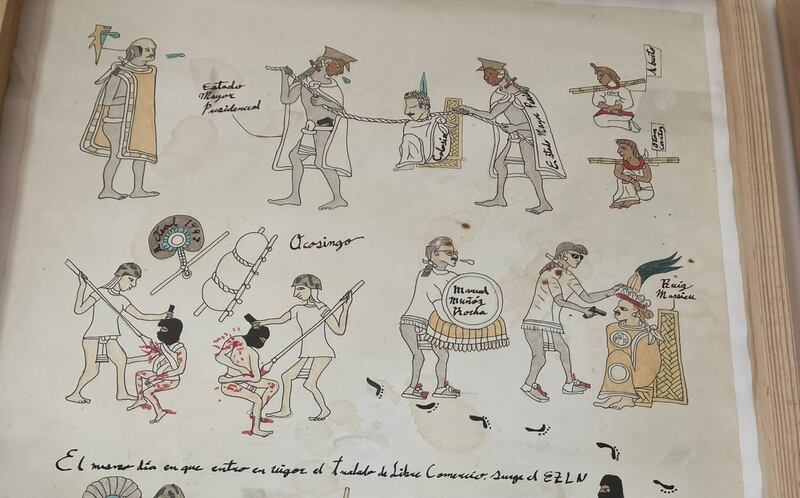 Estado
Mayor
Presidencial
Colosio
Estado Mayor
Aburto
Othon
Cortez
Acteal 1997
Ocosingo
Manuel
Muñoz
Rocha
Ruiz
Massieu
El mismo día en que entro en vigor el Tratado de Libre Comercio, surge el EZLN